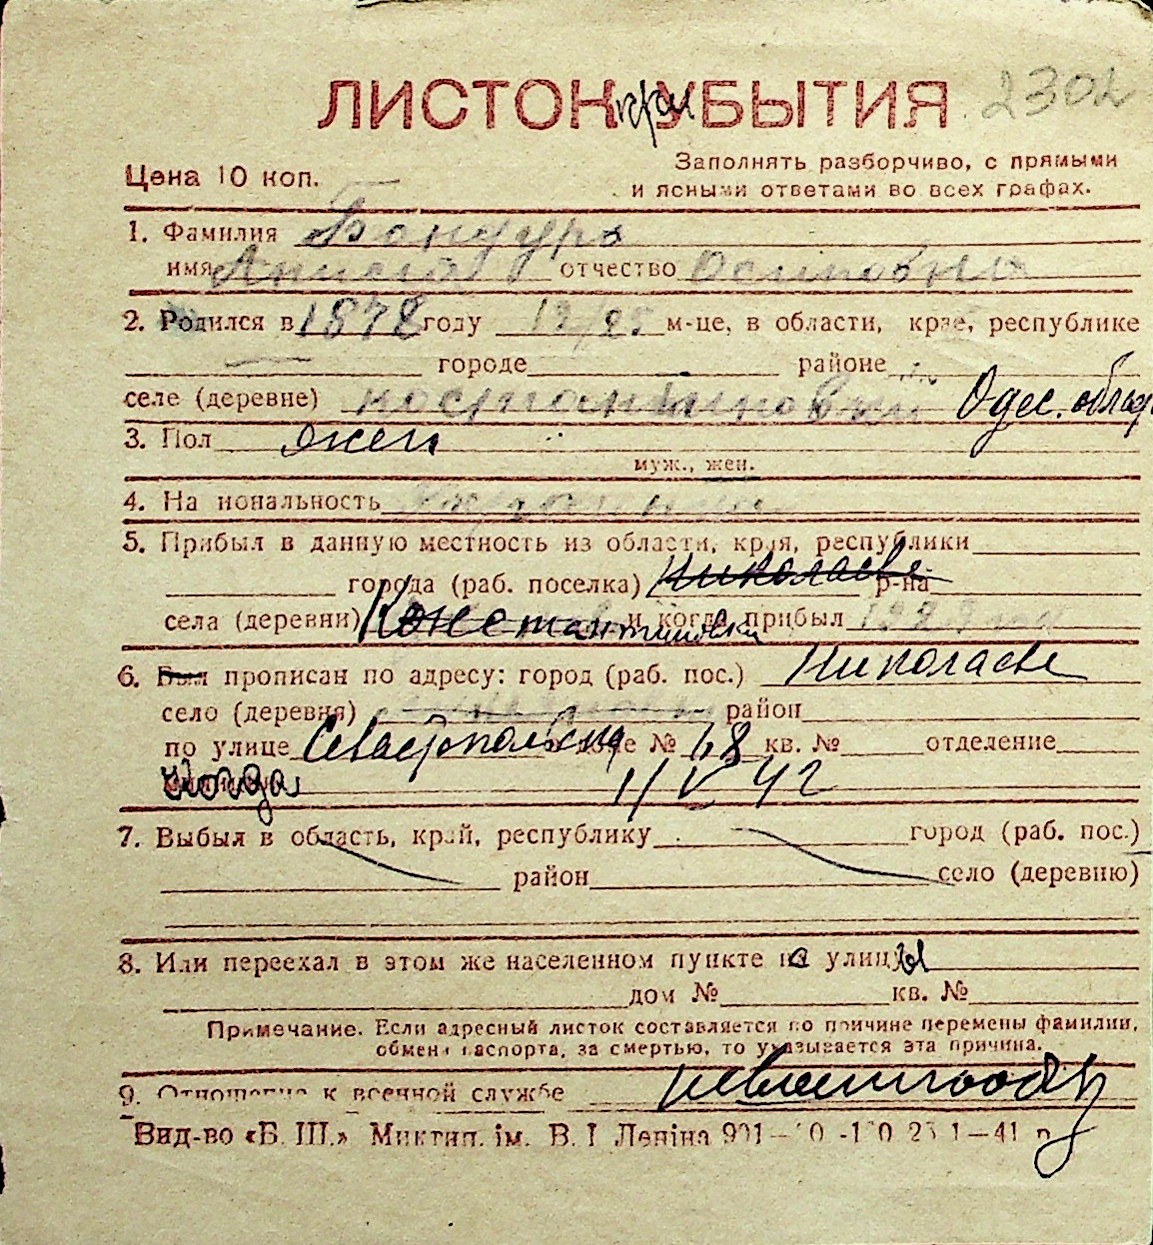 ЛИСТОК при УБЫТИЯ 2302
Цена 10 коп.
Заполнять разборчиво, с прямыми
и ясными ответами во всех графах.
1. Фамилия Бондура
имя Анисия отчество Осиповна
2. Родился в 1878 году 19/25 м-це, в области, крае, республике
городе районе
селе (деревне) Одес. облас
3. Пол жен
муж., жен.
4. На иональность
5. Прибыл в данную местность из области, края, республики
города (раб. поселка) Николаева р-на
села (деревни) Константиновки и когда прибыл
6. Был прописан по адресу: город (раб. пос.) Николаеве
село (деревня) район
по улице Севастопольская доме № 68 кв. № отделение
Когда 1/V 42
7. Выбыл в область, край, республику город (раб. пос.)
район село (деревню)
8. Или переехал в этом же населенном пункте на улицы
дом № кв. №
Примечание. Если адресный листок составляется по причине перемены фамилии,
обмена паспорта, за смертью, то указывается эта причина.
9. Отношение к военной службе
Вид-во «Б. Ш.» Миктип. ім. В. І Леніна